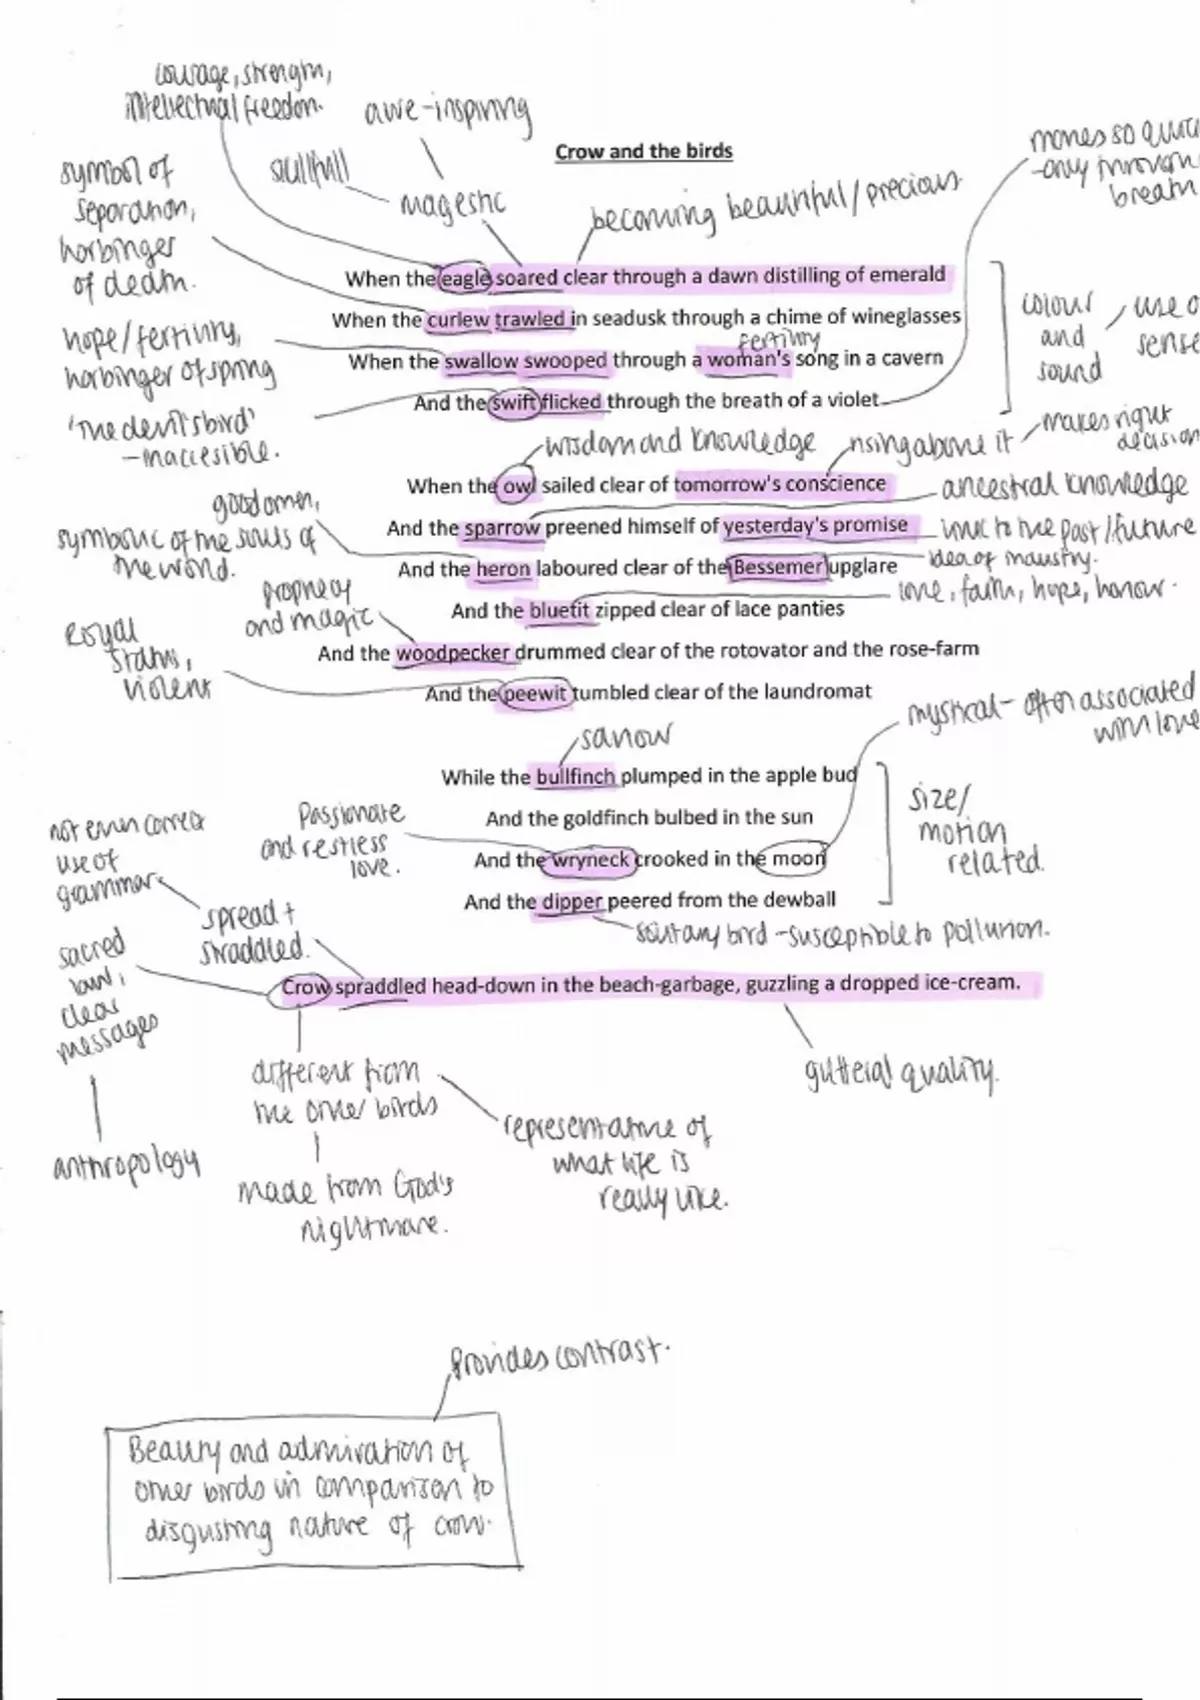 courage, strength,
intellectual freedom.
awe-inspiring
Crow and the birds
moves so quick
-only through
breath
symbol of
separation,
harbinger
of death.
skillfull
magestic
becoming beautiful/precious
When the eagle soared clear through a dawn distilling of emerald
When the curlew trawled in seadusk through a chime of wineglasses
colour
and
sound
use o
sense
hope/fertility,
harbinger of spring
fertility
When the swallow swooped through a woman's song in a cavern
And the swift flicked through the breath of a violet
'The devil's bird'
-inaccesible.
wisdom and knowledge
rising above it
makes right
decision
When the owl sailed clear of tomorrow's conscience
ancestral knowledge
good omen,
symbolic of the souls of
the world.
And the sparrow preened himself of yesterday's promise
link to the past/future
And the heron laboured clear of the Bessemer upglare
idea of industry.
prophecy
and magic
And the bluetit zipped clear of lace panties
love, faith, hope, honour.
Royal
status,
violent
And the woodpecker drummed clear of the rotovator and the rose-farm
And the peewit tumbled clear of the laundromat
mystical - often associated
with love
While the bullfinch plumped in the apple bud
And the goldfinch bulbed in the sun
size/
motion
related.
not even correct
use of
grammar
Passionate
and restless
love.
And the wryneck crooked in the moon
And the dipper peered from the dewball
spread +
straddled.
solitary bird - susceptible to pollution.
sacred
law,
clear
messages
Crow spraddled head-down in the beach-garbage, guzzling a dropped ice-cream.
different from
the other birds
gutteral quality.
anthropology
representative of
what life is
really like.
made from God's
nightmare.
Provides contrast.
Beauty and admiration of
other birds in comparison to
disgusting nature of crow.